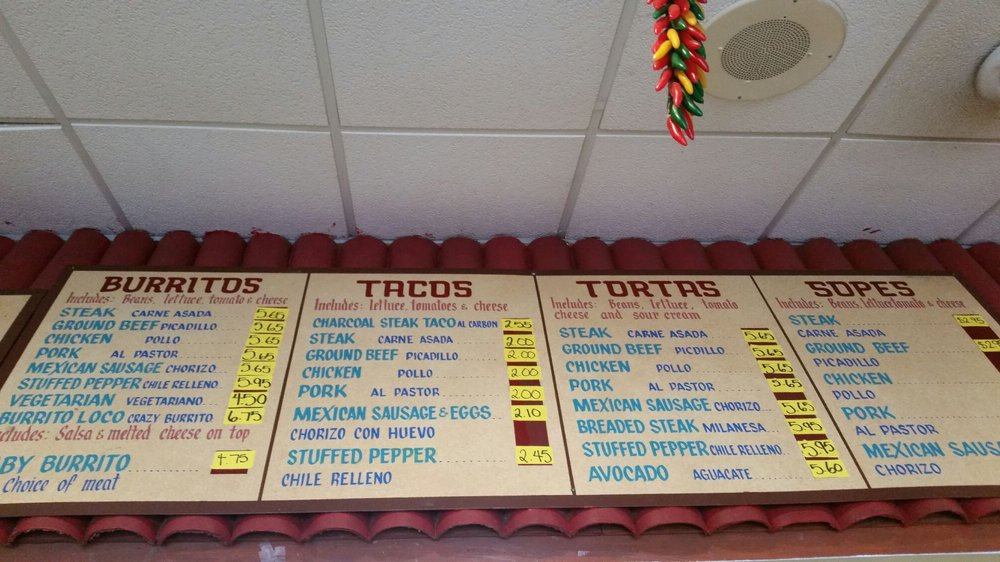 BURRITOS
Includes: Beans, lettuce, tomato & cheese
STEAK CARNE ASADA 5.65
GROUND BEEF PICADILLO 5.65
CHICKEN POLLO 5.65
PORK AL PASTOR 5.65
MEXICAN SAUSAGE CHORIZO 5.65
STUFFED PEPPER CHILE RELLENO 5.95
VEGETARIAN VEGETARIANO 4.50
BURRITO LOCO CRAZY BURRITO 6.75
cludes: Salsa & melted cheese on top
BY BURRITO 4.75
Choice of meat
TACOS
Includes: lettuce, tomatoes & cheese
CHARCOAL STEAK TACO AL CARBON 2.55
STEAK CARNE ASADA 2.00
GROUND BEEF PICADILLO 2.00
CHICKEN POLLO 2.00
PORK AL PASTOR 2.00
MEXICAN SAUSAGE & EGGS 2.10
CHORIZO CON HUEVO
STUFFED PEPPER 2.45
CHILE RELLENO
TORTAS
Includes: Beans, lettuce, tomato
cheese and sour cream
STEAK CARNE ASADA 5.65
GROUND BEEF PICDILLO 5.65
CHICKEN POLLO 5.65
PORK AL PASTOR 5.65
MEXICAN SAUSAGE CHORIZO 5.65
BREADED STEAK MILANESA 5.95
STUFFED PEPPER CHILE RELLENO 5.95
AVOCADO AGUACATE 5.60
SOPES
Includes: Beans, lettuce, tomato & cheese
STEAK $2.95
CARNE ASADA
GROUND BEEF
PICADILLO
CHICKEN
POLLO
PORK
AL PASTOR
MEXICAN SAUS
CHORIZO